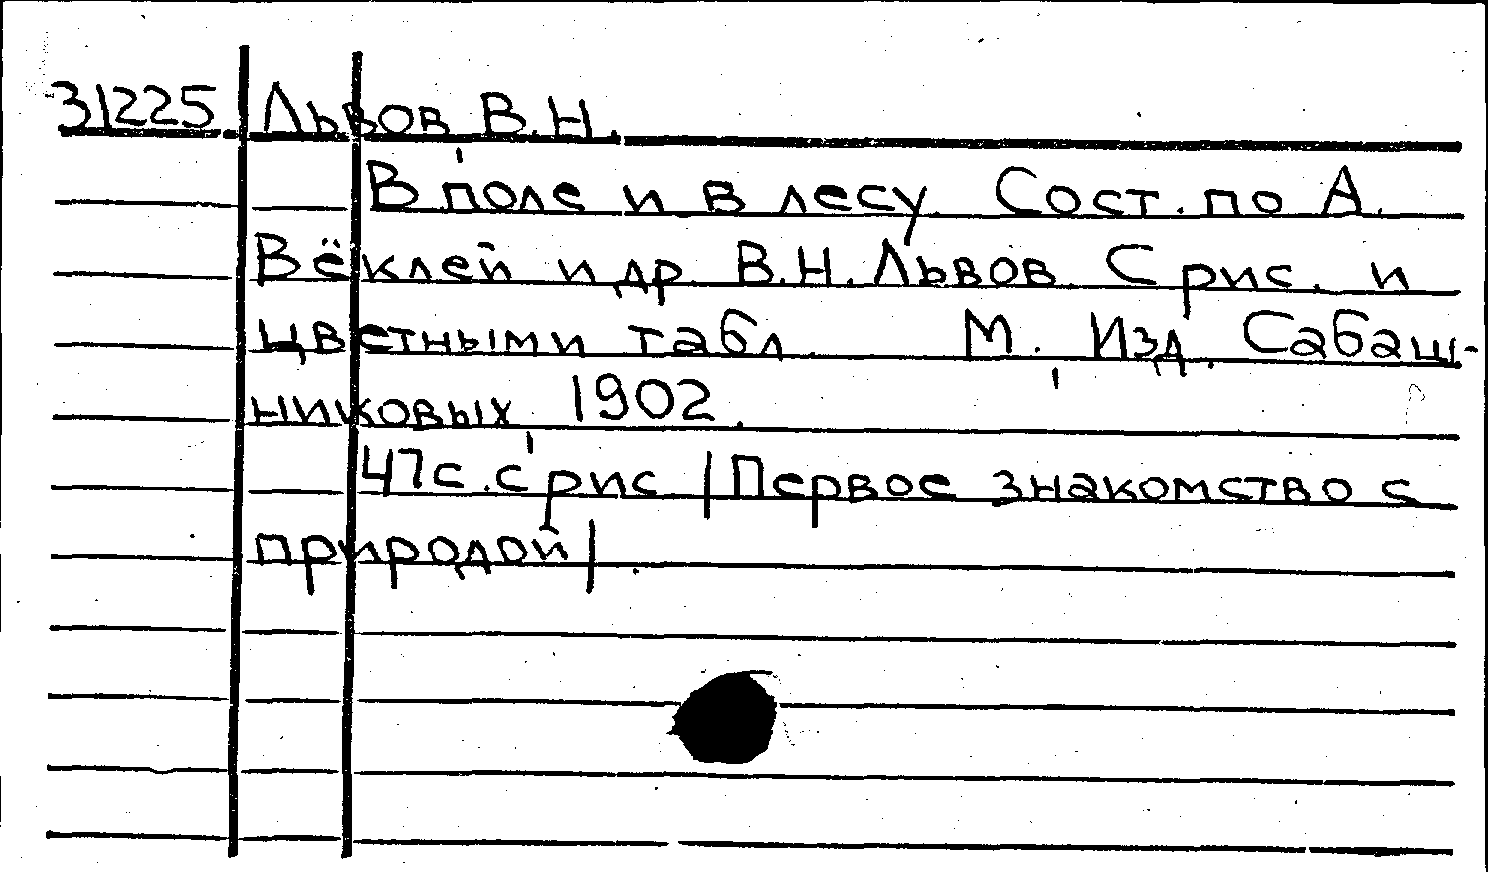 31225 Львов В.Н.
В поле и в лесу. Сост. по А.
Вёклей и др. В.Н. Львов. С рис. и
цветными табл. М. Изд. Сабаш-
никовых, 1902.
47с. с рис |Первое знакомство с
природой|.